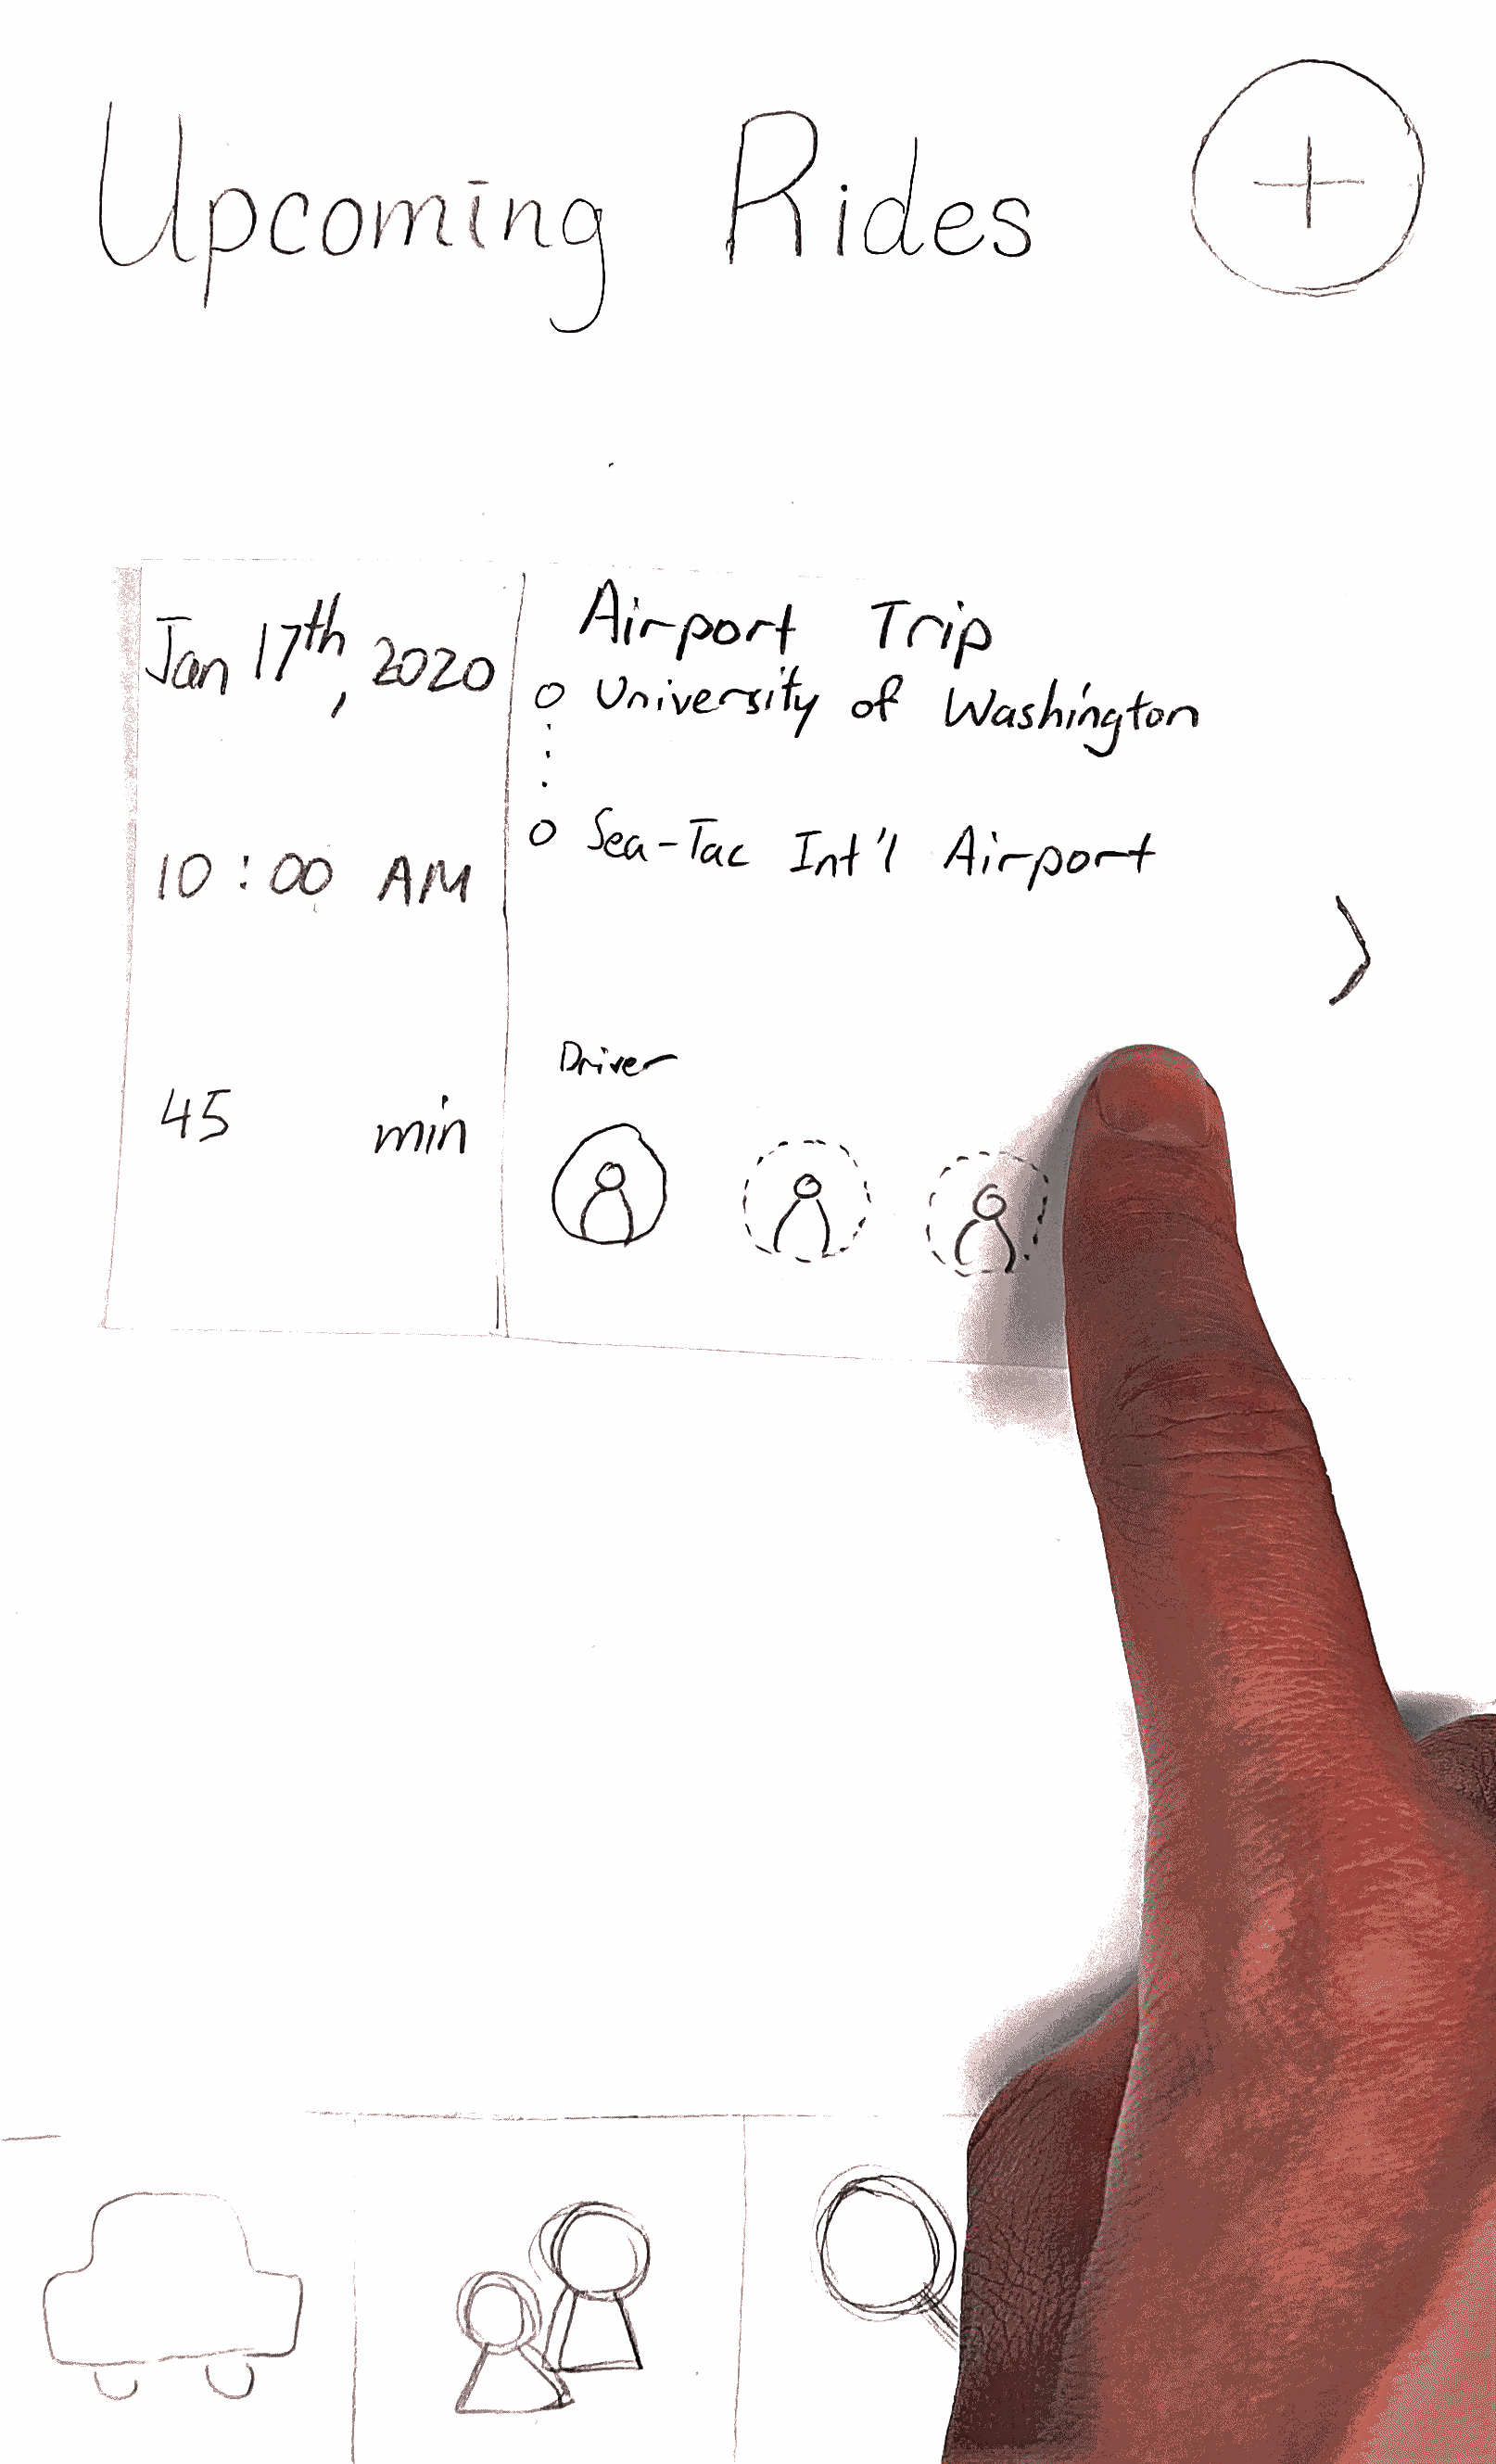 Upcoming Rides +
Jan 17th, 2020
10:00 AM
45 min
Airport Trip
University of Washington
Sea-Tac Int'l Airport
Driver